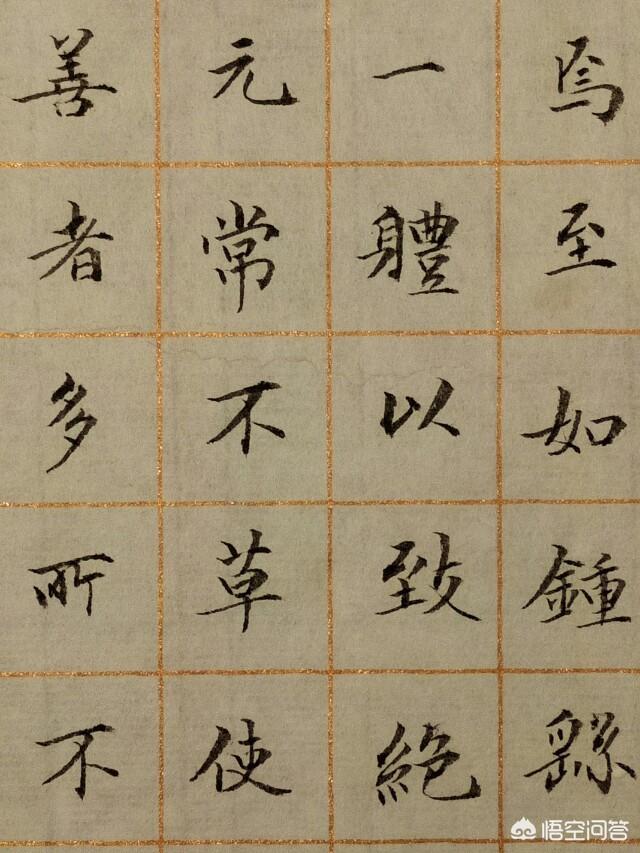 焉至如鍾繇
一體以致絶
元常不草使
善者多所不
悟空问答